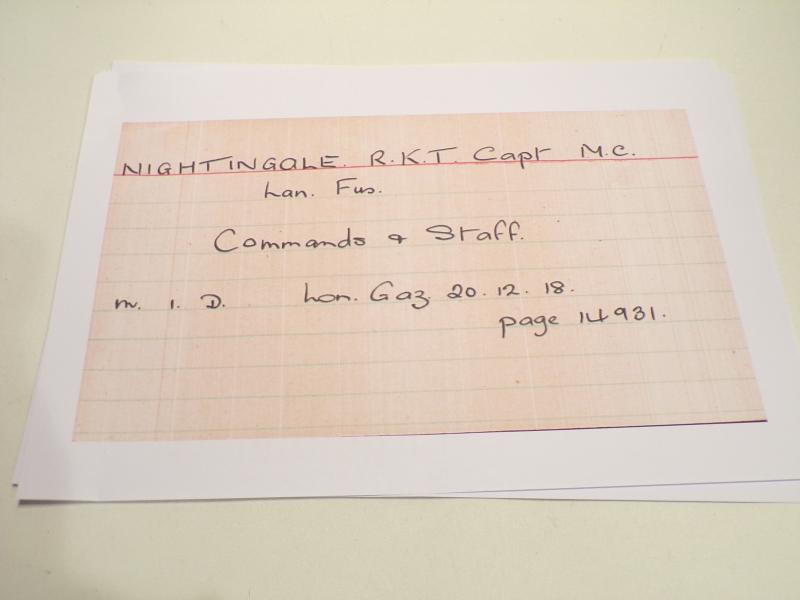 NIGHTINGALE. R.K.T. Capt M.C.
Lan. Fus.
Commands & Staff.
m. 1. D. Lon. Gaz. 20.12.18.
page 14931.